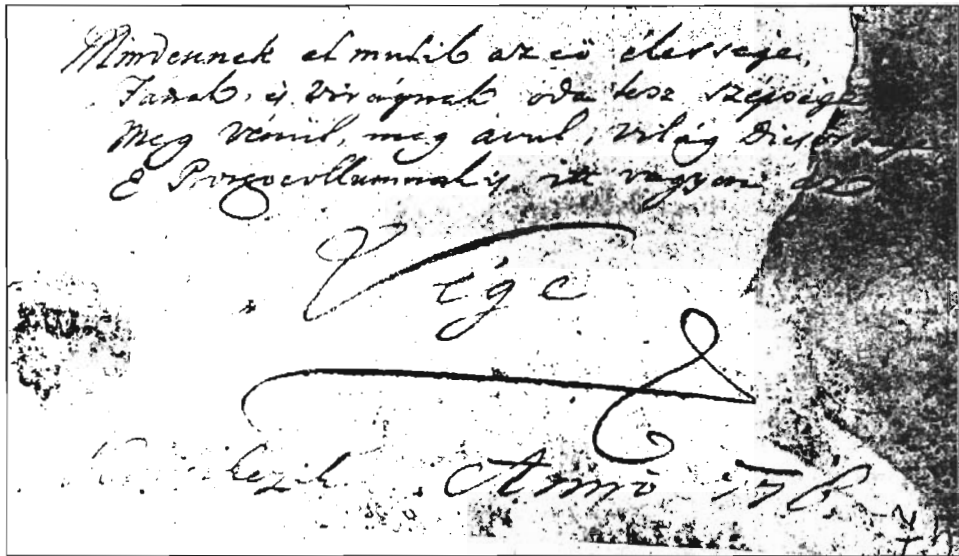 Mindennek el mulik az eő élessége,
Fának, és virágnak oda lesz szépsége
Meg vénül, meg avul, világ dicsősége
E Protocollumnak is itt vagyon
Vége
Anno